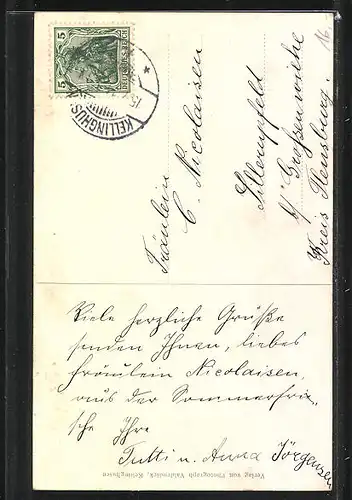 5 5
DEUTSCHES REICH
KELLINGHUS
Fräulein
C. Nicolaisen
b/ Großenwiehe
Kreis Flensburg.
16.
Viele herzliche Grüße
senden Ihnen, liebes
Fräulein Nicolaisen,
aus der Sommerfri=
sche Ihre
Tutti u. Anna Jörgensen
Verlag von Photograph Kellinghusen